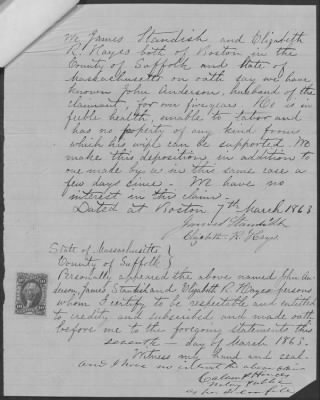 We James Standish and Elizabeth
R. Hayes both of Boston in the
County of Suffolk and State of
Massachusetts on oath say we have
known John Anderson, husband of the
claimant, for over five years. He is in
feeble health, unable to labor and
has no property of any kind from
which his wife can be supported. We
make this deposition in addition to
one made by us in this same case a
few days since. We have no
interest in the claim.
Dated at Boston 7th March 1863
James Standish
Elizabeth R. Hayes
State of Massachusetts }
County of Suffolk }
Personally appeared the above named John An-
derson, James Standish and Elizabeth R Hayes persons
whom I certify to be respectable and entitled
to credit, and subscribed and made oath
before me to the foregoing statement this
seventh - day of March 1863.
Witness my hand and seal
and I have no interest in the above claim
Notary Public